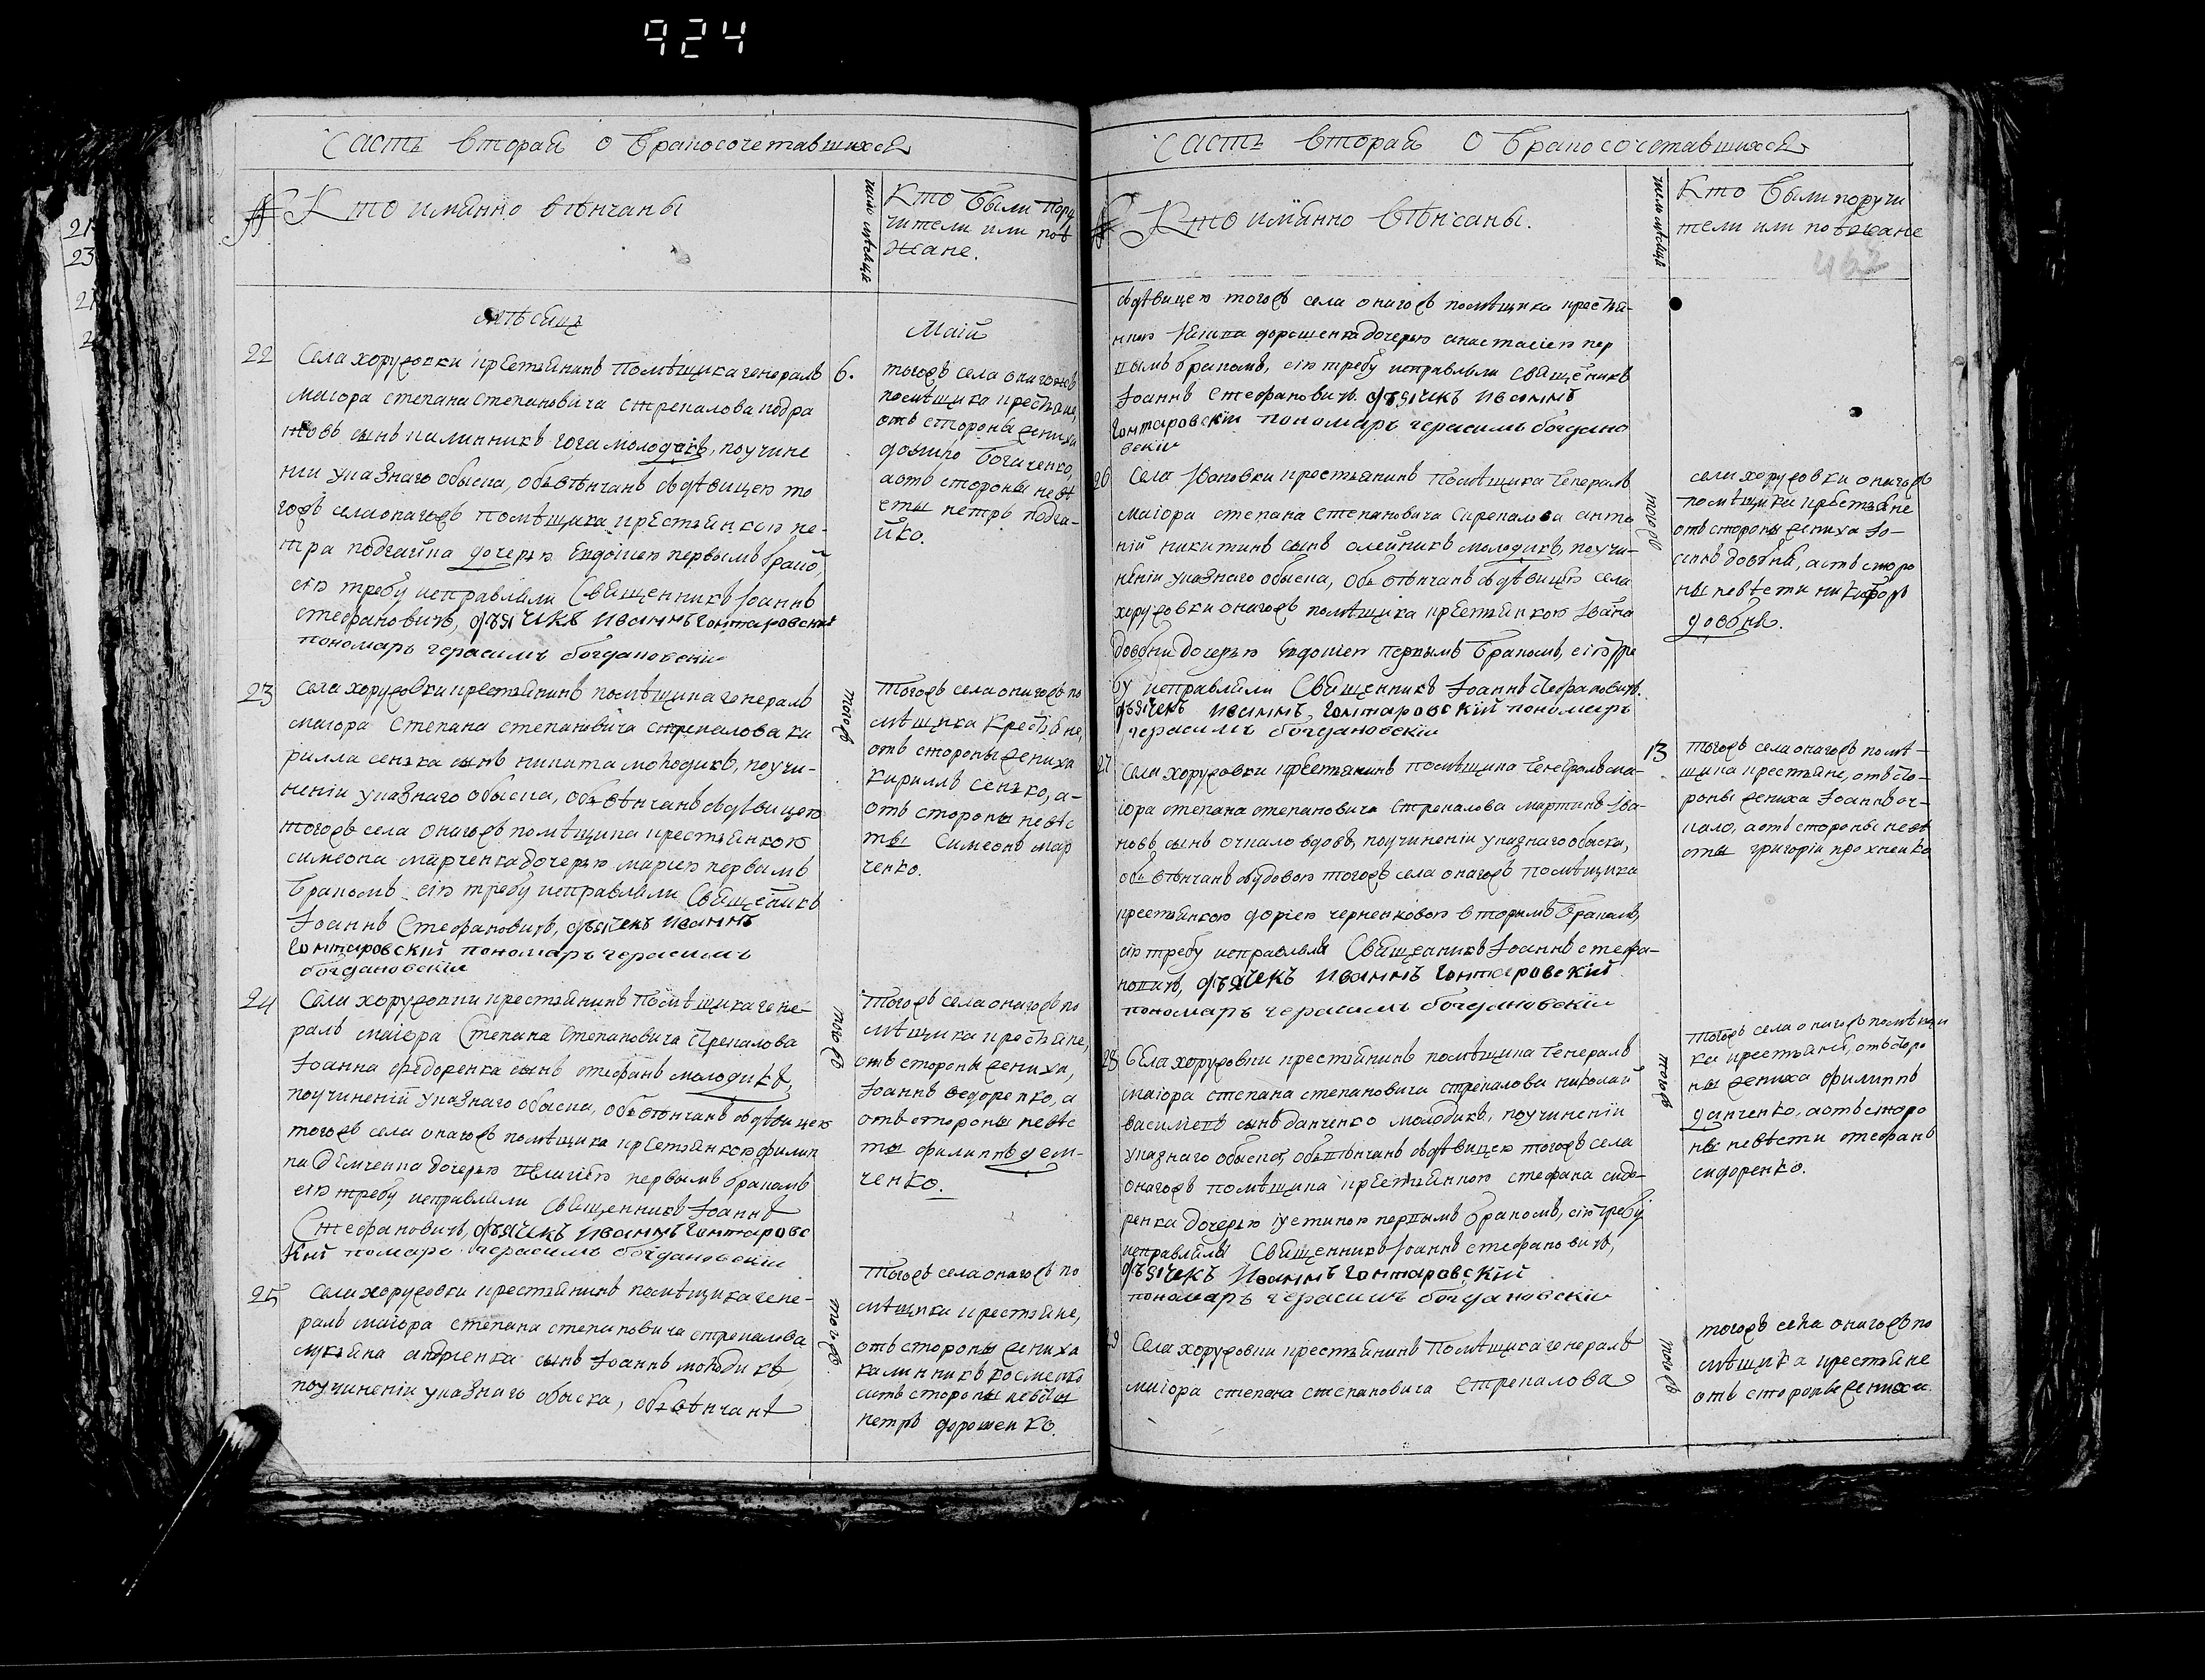 924
Часть вторая о бракосочетавшихся
№
Кто имянно вѣнчаны
число мѣсяца
Кто были пору
чители или поѣ
жане.
мѣсяцъ
Маій
22
Села хоружовки крестьянинъ помѣщика генералъ
маіора степана степановича стрекалова кодра
товъ сынъ калинникъ гога молодикъ, поучине
ніи указнаго обыска, обвѣнчанъ здѣвицею то
гожъ села онагожъ помѣщика крестьянкою пе-
тра подгайка дочерью Евдокіею первымъ бракомъ,
сію требу исправляли Священникъ Іоаннъ
стефановичъ, дьячекъ иваннъ Гонтаровскій
пономарь герасимъ богдановскій
6.
тогожъ села онагожъ
помѣщика крестьяне,
отъ стороны жениха
данило богаченко,
аотъ стороны невѣ
сты петръ подга-
йко.
23
Села хоружовки крестьянинъ помѣщика генералъ
маиора Степана степановича стрекалова ки
рилла сенька сынъ никита молодикъ, поучи-
неніи указнаго обыска, обвѣнчанъ здѣвицею
тогожъ села онагожъ помѣщика крестьянкою
симеона марченка дочерью маріею первымъ
бракомъ сію требу исправляли Священникъ
Іоаннъ Стефановичъ, дьячекъ иваннъ
Гонтаровский пономарь герасимъ
богдановскій
тогожъ
Тогожъ села онагожъ по
мѣщика Крестьяне,
отъ стороны жениха
Кириллъ сенько, а-
отъ стороны невѣс
ты Симеонъ мар
ченко.
24
Села хоружовки крестьянинъ помѣщика гене-
ралъ маіора Степана Степановича Стрекалова
Іоанна федоренка сынъ стефанъ молодикъ,
поучиненіи указнаго обыска, обвѣнчанъ здѣвицею
тогожъ села онагожъ помѣщика крестьянкою филип
па демченка дочерью пелагіею первымъ бракомъ
сію требу исправляли Священникъ Іоаннъ
Стефановичъ, дьячекъ иваннъ Гонтаровс
Кий помарь герасимъ богдановскій
тогожъ
Тогожъ села онагожъ по
мѣщика крестьяне,
отъ стороны жениха,
Іоаннъ ѳедоренко, а
отъ стороны невѣс
ты филиппъ дем-
ченко.
25
Села хоружовки крестьянинъ помѣщика гене-
ралъ маіора степана степановича стрекалова
лукьяна андріенка сынъ Іоаннъ молодикъ
поучиненіи указнаго обыска, обвѣнчанъ
тогожъ
тогожъ села онагожъ по
мѣщика крестьяне,
отъ стороны жениха
калинникъ косменко
отъ стороны невѣсты
петръ дорошенко.
Часть вторая о бракосочетавшихся
№
Кто имянно вѣнчаны.
число мѣсяца
Кто были поручи
тели или поѣжане
462
здѣвицею тогожъ села онагожъ помѣщика крестья-
нкою дорошенка дочерью анастасіею пер
вымъ бракомъ, сію требу исправляли Священникъ
Іоаннъ Стефановичъ дьячикъ иваннъ
Гонтаровскій пономарь герасимъ богдано
вскій
26
Села Ивановки крестьянинъ помѣщика генералъ
маіора степана степановича Стрекалова анто
ній никитинъ сынъ олейникъ молодикъ, поучи-
неніи указнаго обыска, обвѣнчанъ здѣвицею села
хоружовки онагожъ помѣщика крестьянкою Івана
довбни дочерью Евдокіею первымъ бракомъ, сію тре
бу исправляли Священникъ Іоаннъ Стефановичъ.
дьячекъ иваннъ Гонтаровский пономарь
герасимъ богдановскій
тогожъ
села хоружовки онагожъ
помѣщика крестьяне
отъ стороны жениха Іо-
сипъ довбня, аотъ сторо
ны невѣсти никифоръ
довбня.
27
Села хоружовки крестьянинъ помѣщика генералъ ма-
іора степана степановича стрекалова мартинъ Іва-
новъ сынъ очкало вдовъ, поучиненіи указнаго обыска,
обвѣнчанъ здовою тогожъ села онагожъ помѣщика
крестьянкою доріею черненковою вторимъ бракомъ,
сію требу исправляли Священикъ Іоаннъ стефа-
новичъ, дьячекъ иваннъ Гонтаровский
пономарь герасимъ богдановскій
13
тогожъ села онагожъ помѣ-
щика крестьяне, отъ сто-
роны жениха Іоаннъ оч-
кало, аотъ стороны невѣ
сты григорій прохненко
28
Села хоружовки крестьянинъ помѣщика генералъ
маіора степана степановича стрекалова николай
василіевъ сынъ данченко молодикъ, поучиненіи
указнаго обыска, обвѣнчанъ здѣвицею тогожъ села
онагожъ помѣщика крестьянкою стефана сидо-
ренка дочерью іустиною первымъ бракомъ, сію требу
исправляли Священникъ Іоаннъ стефановичъ,
дьячекъ Иваннъ Гонтаровский
пономарь герасимъ богдановскій
тогожъ
тогожъ села онагожъ помѣщи
ка крестьяне, отъ сторо
ны жениха филиппъ
данченко, аотъ сторо
ны невѣсти стефанъ
сидоренко.
29
Села хоружовки крестьянинъ Помѣщика генералъ
маіора степана степановича Стрекалова
тогожъ
тогожъ села онагожъ по
мѣщика крестьяне
отъ стороны жениха